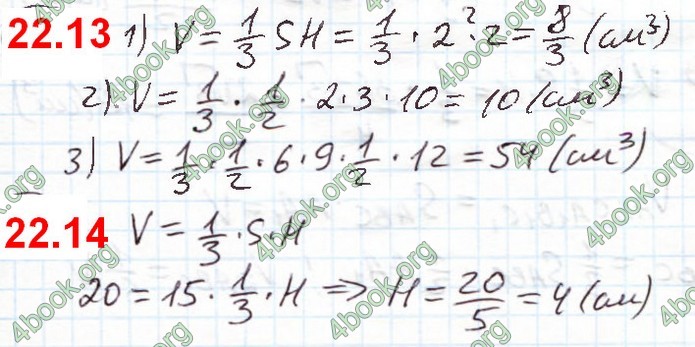 22.13 1) V = 1/3 SH = 1/3 · 2² · 2 = 8/3 (см³)
2) V = 1/3 · 1/2 · 2 · 3 · 10 = 10 (см³)
3) V = 1/3 · 1/2 · 6 · 9 · 1/2 · 12 = 54 (см³)
22.14 V = 1/3 · S · H
20 = 15 · 1/3 · H => H = 20/5 = 4 (см)
4book.org